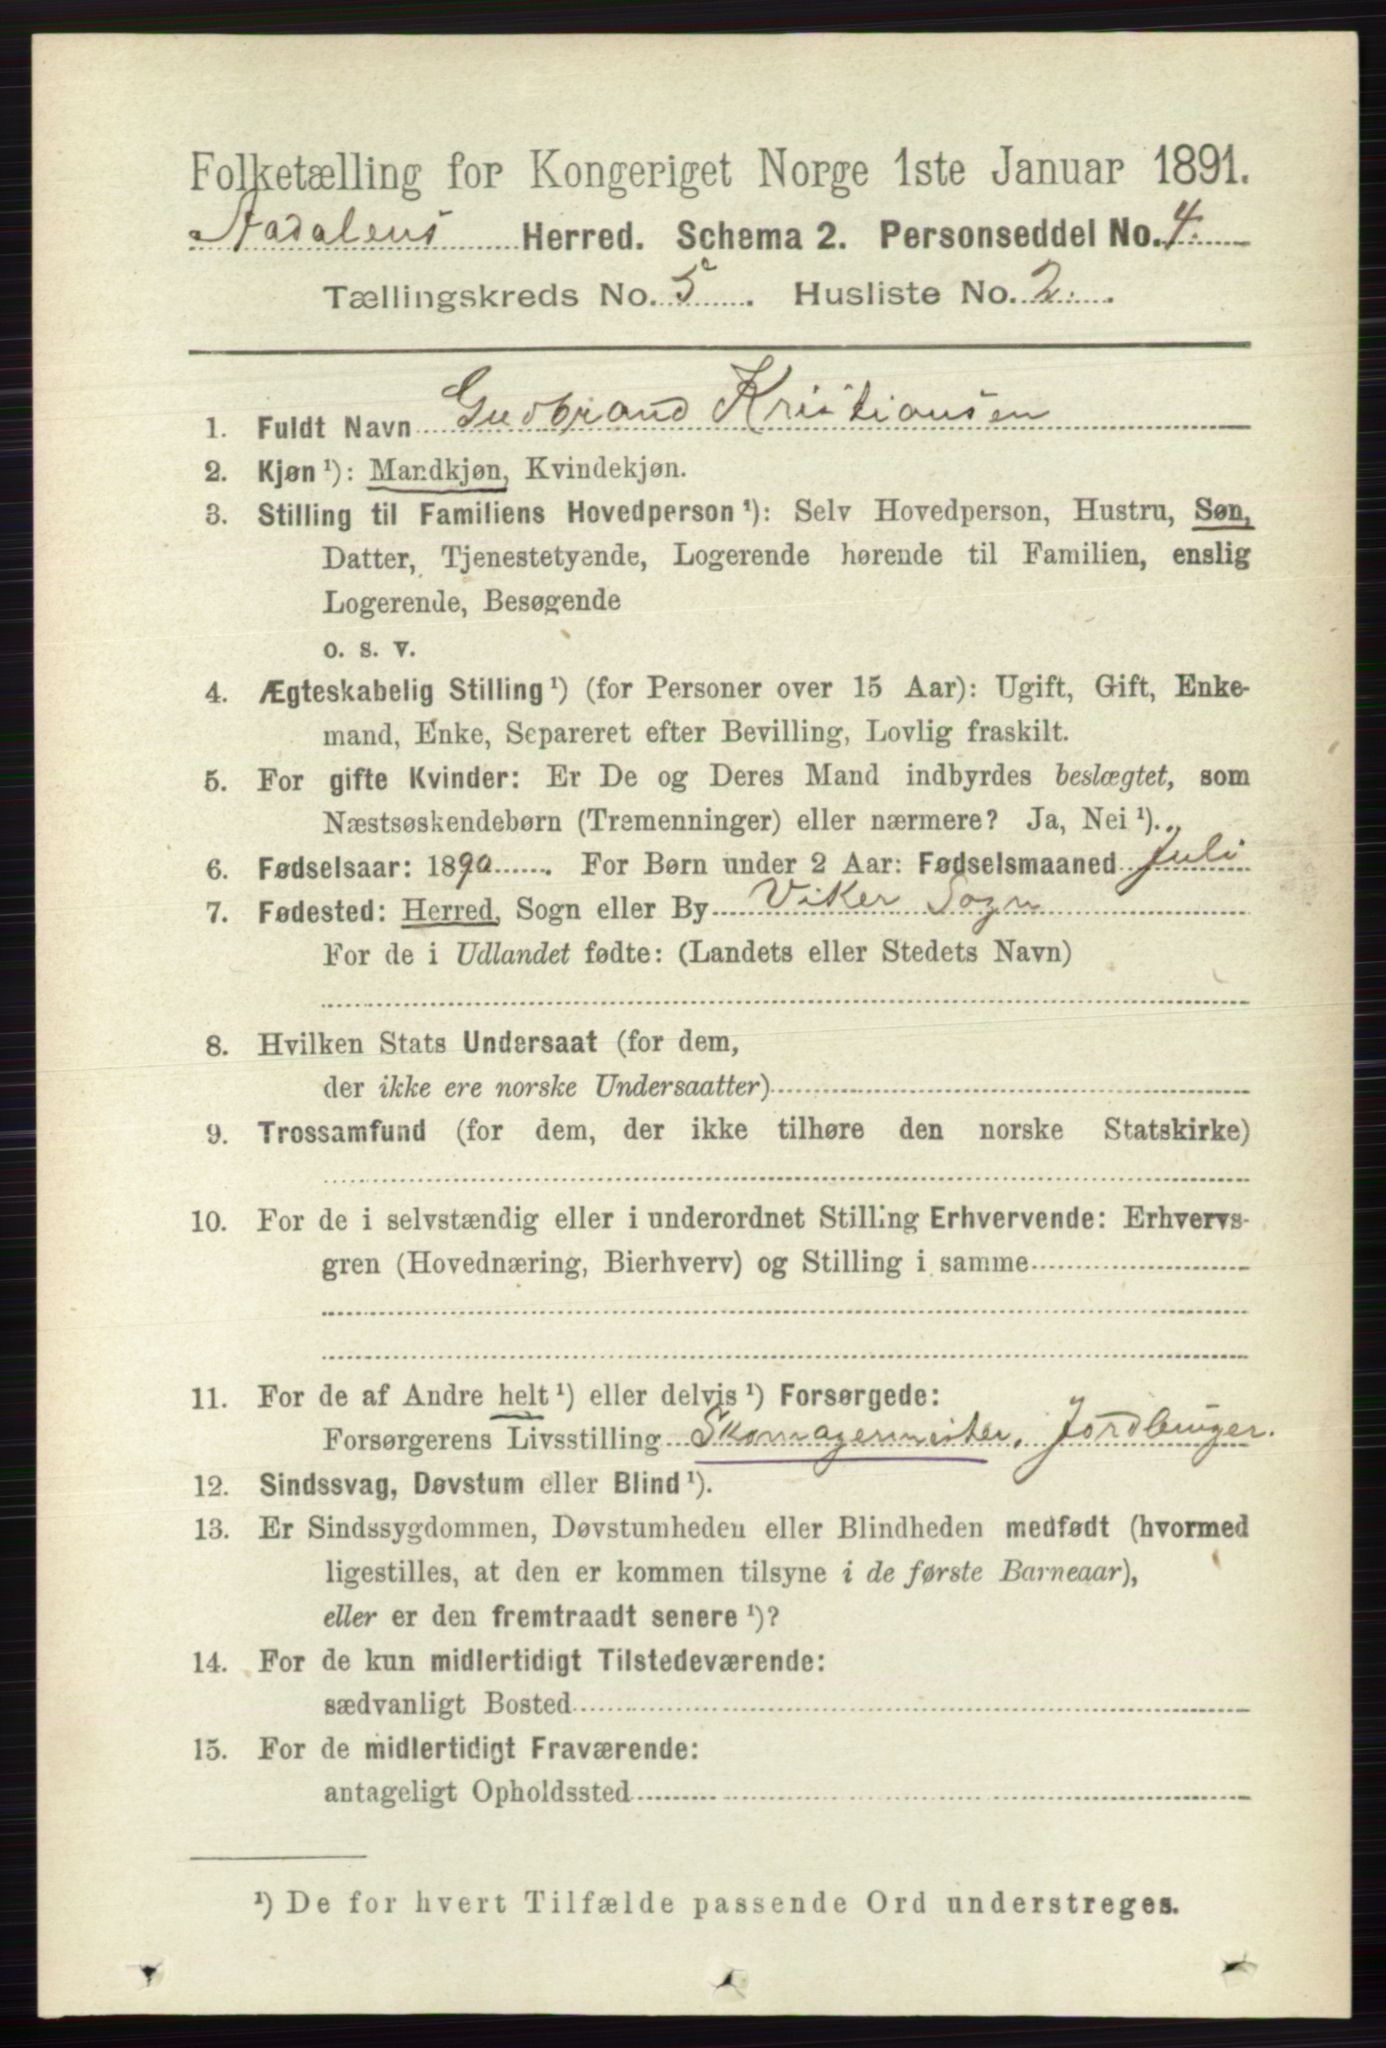 Folketælling for Kongeriget Norge 1ste Januar 1891.
Aadalens Herred. Schema 2. Personseddel No. 4.
Tællingskreds No. 5. Husliste No. 2.
1. Fuldt Navn Gudbrand Kristiansen
2. Kjøn ¹): Mandkjøn, Kvindekjøn.
3. Stilling til Familiens Hovedperson ¹): Selv Hovedperson, Hustru, Søn,
Datter, Tjenestetyende, Logerende hørende til Familien, enslig
Logerende, Besøgende
o. s. v.
4. Ægteskabelig Stilling ¹) (for Personer over 15 Aar): Ugift, Gift, Enke-
mand, Enke, Separeret efter Bevilling, Lovlig fraskilt.
5. For gifte Kvinder: Er De og Deres Mand indbyrdes beslægtet, som
Næstsøskendebørn (Tremenninger) eller nærmere? Ja, Nei ¹).
6. Fødselsaar: 1890. For Børn under 2 Aar: Fødselsmaaned Juli
7. Fødested: Herred, Sogn eller By Viker Sogn
For de i Udlandet fødte: (Landets eller Stedets Navn)
8. Hvilken Stats Undersaat (for dem,
der ikke ere norske Undersaatter)
9. Trossamfund (for dem, der ikke tilhøre den norske Statskirke)
10. For de i selvstændig eller i underordnet Stilling Erhvervende: Erhvervs-
gren (Hovednæring, Bierhverv) og Stilling i samme
11. For de af Andre helt ¹) eller delvis ¹) Forsørgede:
Forsørgerens Livsstilling Skomagermester, Jordbruger.
12. Sindssvag, Døvstum eller Blind ¹).
13. Er Sindssygdommen, Døvstumheden eller Blindheden medfødt (hvormed
ligestilles, at den er kommen tilsyne i de første Barneaar),
eller er den fremtraadt senere ¹)?
14. For de kun midlertidigt Tilstedeværende:
sædvanligt Bosted
15. For de midlertidigt Fraværende:
antageligt Opholdssted
¹) De for hvert Tilfælde passende Ord understreges.